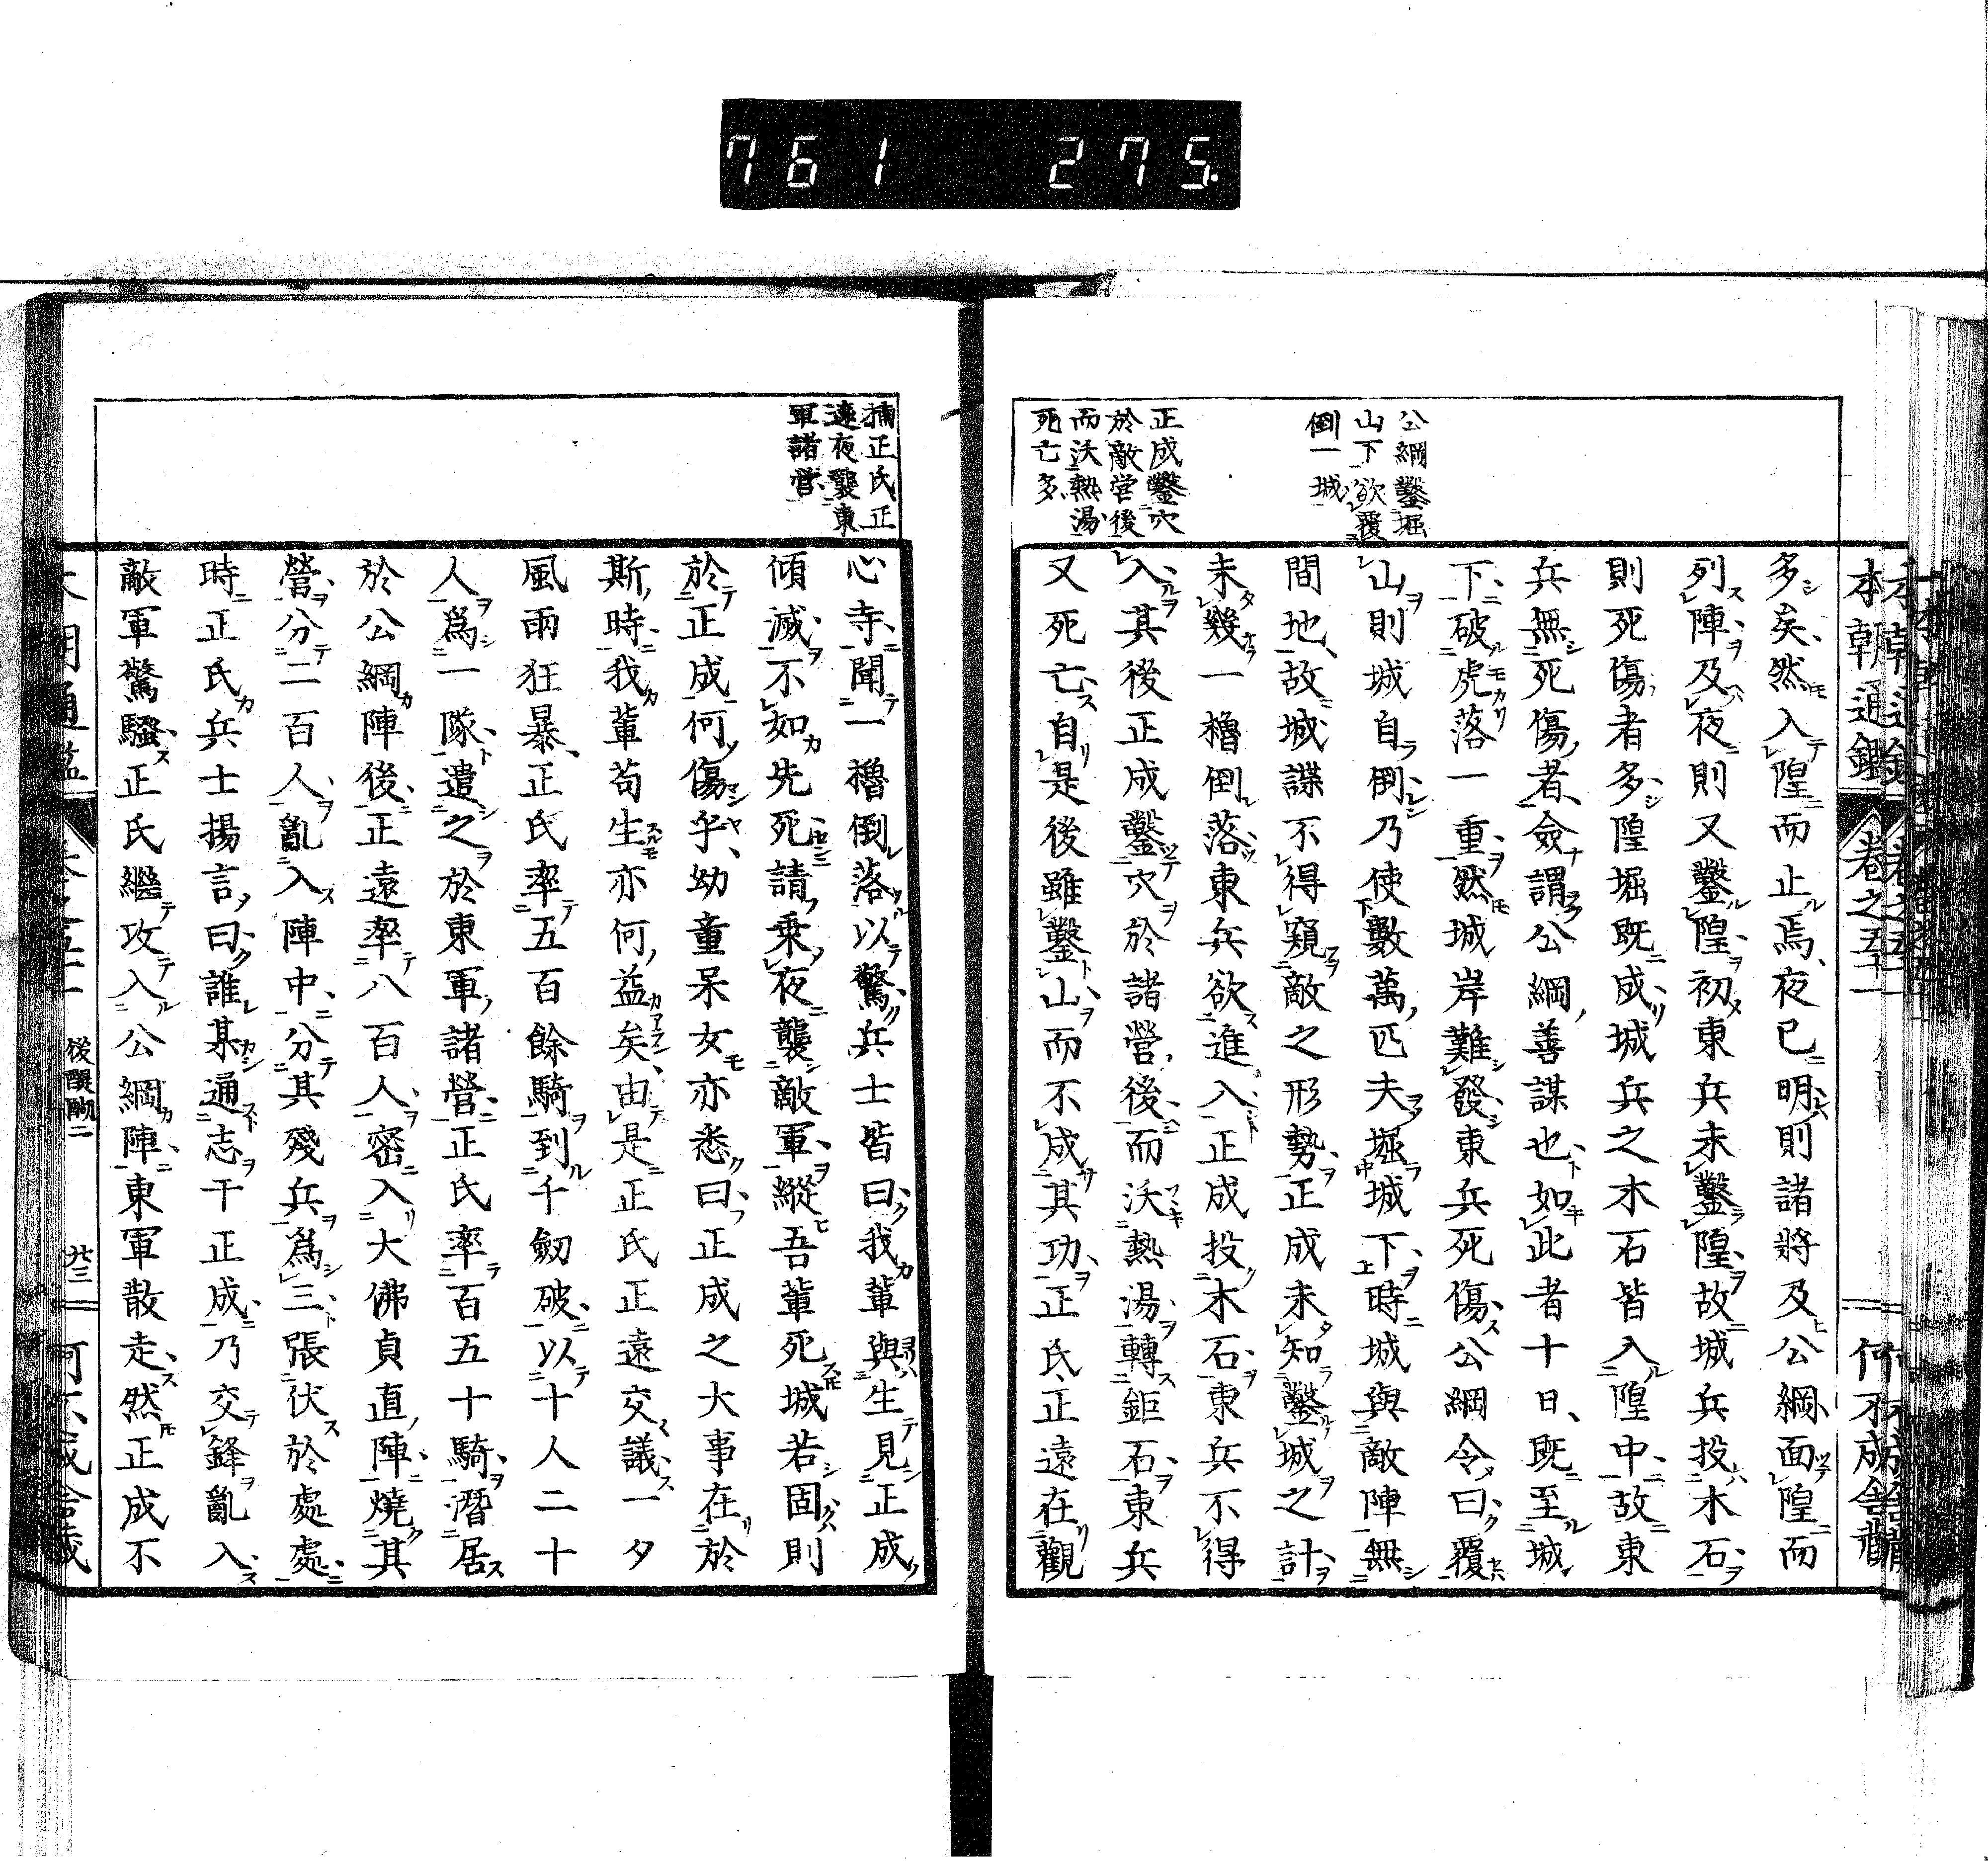 761 275
本朝通鑑 卷之五十一 何不成舍藏
公綱鑿堀
山下欲覆
倒一城
正成鑿穴
於敵営後
而沃熱湯
死亡多
多矣然入隍而止焉夜已明則諸將及公綱面隍而
列陣及夜則又鑿隍初東兵未鑿隍故城兵投木石
則死傷者多隍堀既成城兵之木石皆入隍中故東
兵無死傷者僉謂公綱善謀也如此者十日既至城
下破虎落一重然城岸難發東兵死傷公綱令曰覆
山則城自倒乃使數萬匹夫堀城下時城與敵陣無
間地故城諜不得窺敵之形勢正成未知鑿城之計
未幾一櫓倒落東兵欲進入正成投木石東兵不得
入其後正成鑿穴於諸營後而沃熱湯轉鉅石東兵
又死亡自是後雖鑿山而不成其功正氏正遠在觀
楠正氏正
遠夜襲東
軍諸營
心寺聞一櫓倒落以驚兵士皆曰我輩與生見正成
傾滅不如先死請乘夜襲敵軍縱吾輩死城若固則
於正成何傷乎幼童呆女亦悉曰正成之大事在於
斯時我輩苟生亦何益矣由是正氏正遠交議一夕
風雨狂暴正氏率五百餘騎到千劔破以十人二十
人爲一隊遣之於東軍諸營正氏率百五十騎潛居
於公綱陣後正遠率八百人密入大佛貞直陣燒其
營分二百人亂入陣中分其殘兵爲三張伏於處處
時正氏兵士揚言曰誰某通志于正成乃交鋒亂入
敵軍驚騷正氏繼攻入公綱陣東軍散走然正成不
後醍醐二 廿三